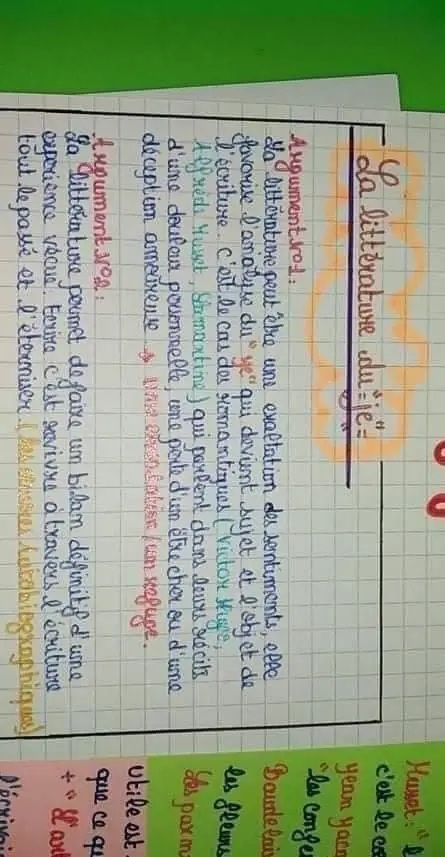 La littérature du "je"
Argument N°1:
La littérature peut être une exaltation des sentiments, elle
favorise l'analyse du "je" qui devient sujet et l'objet de
l'écriture. c'est le cas des romantiques (Victor Hugo,
Alfred de Musset, Lamartine) qui parlent dans leurs récits
d'une douleur personnelle, une perte d'un être cher ou d'une
déception amoureuse → Une consolation / un refuge.
Argument N°2:
La littérature permet de faire un bilan définitif d'une
expérience vécue. Ecrire c'est revivre à travers l'écriture
tout le passé et l'éterniser (les œuvres autobiographiques)
Musset: "l
c'est le ca
Jean Jacq
"les confes
Baudelair
les fleurs
utile est
que ce qu
+ "L'art
l'écrivai